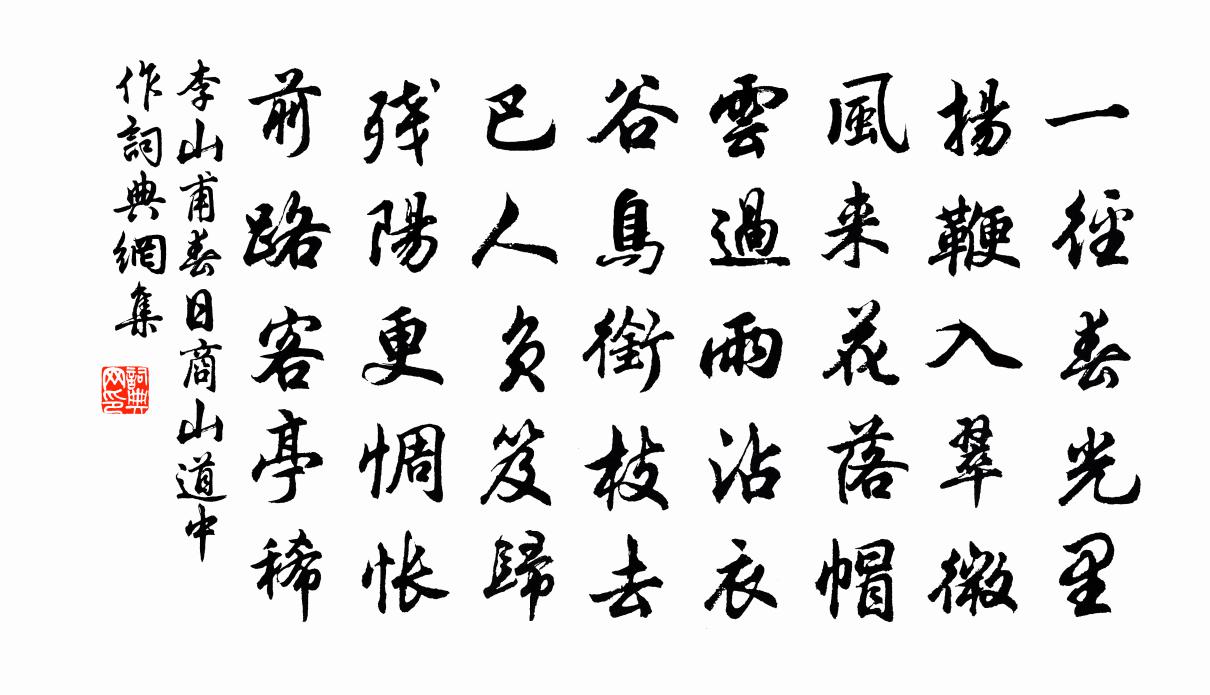 一徑春光里
揚鞭入翠微
風来花落帽
雲過雨沾衣
谷鳥銜枝去
巴人负笈歸
残陽更惆怅
前路客亭稀
李山甫春日商山道中
作詞典網集
詞典
网印